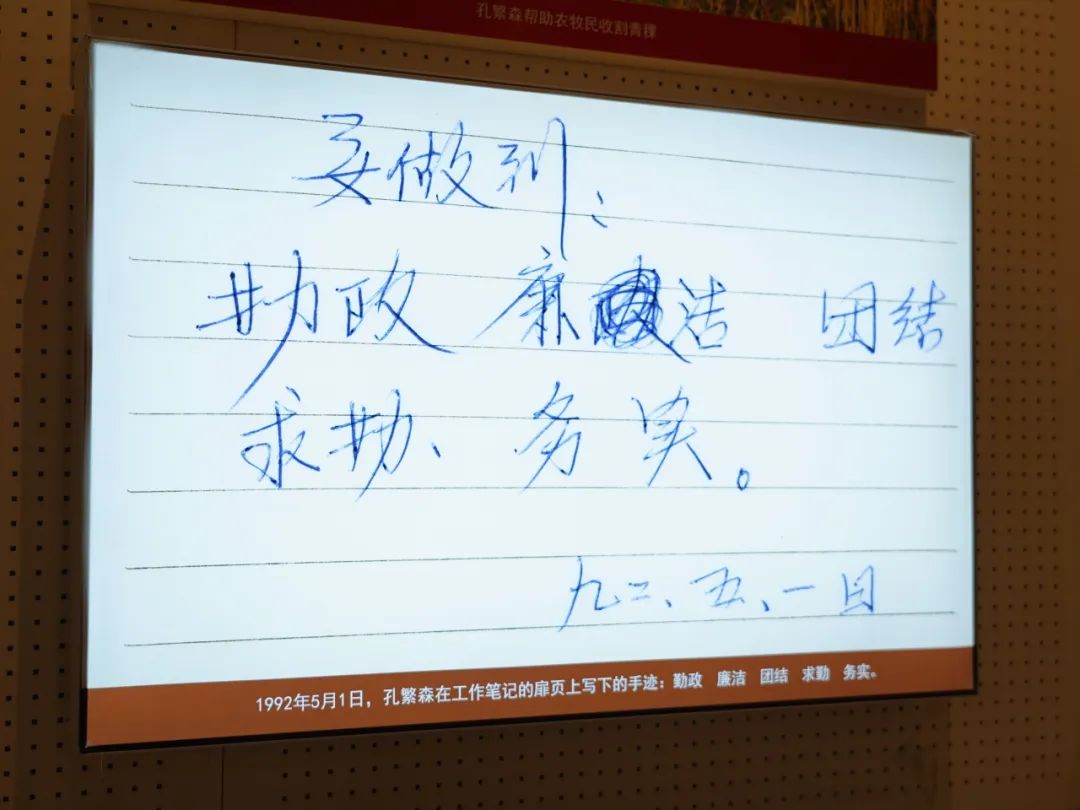 孔繁森帮助农牧民收割青稞
要做到：
勤政 廉洁 团结
求勤、务实。
九二、五、一日
1992年5月1日，孔繁森在工作笔记的扉页上写下的手迹：勤政 廉洁 团结 求勤 务实。